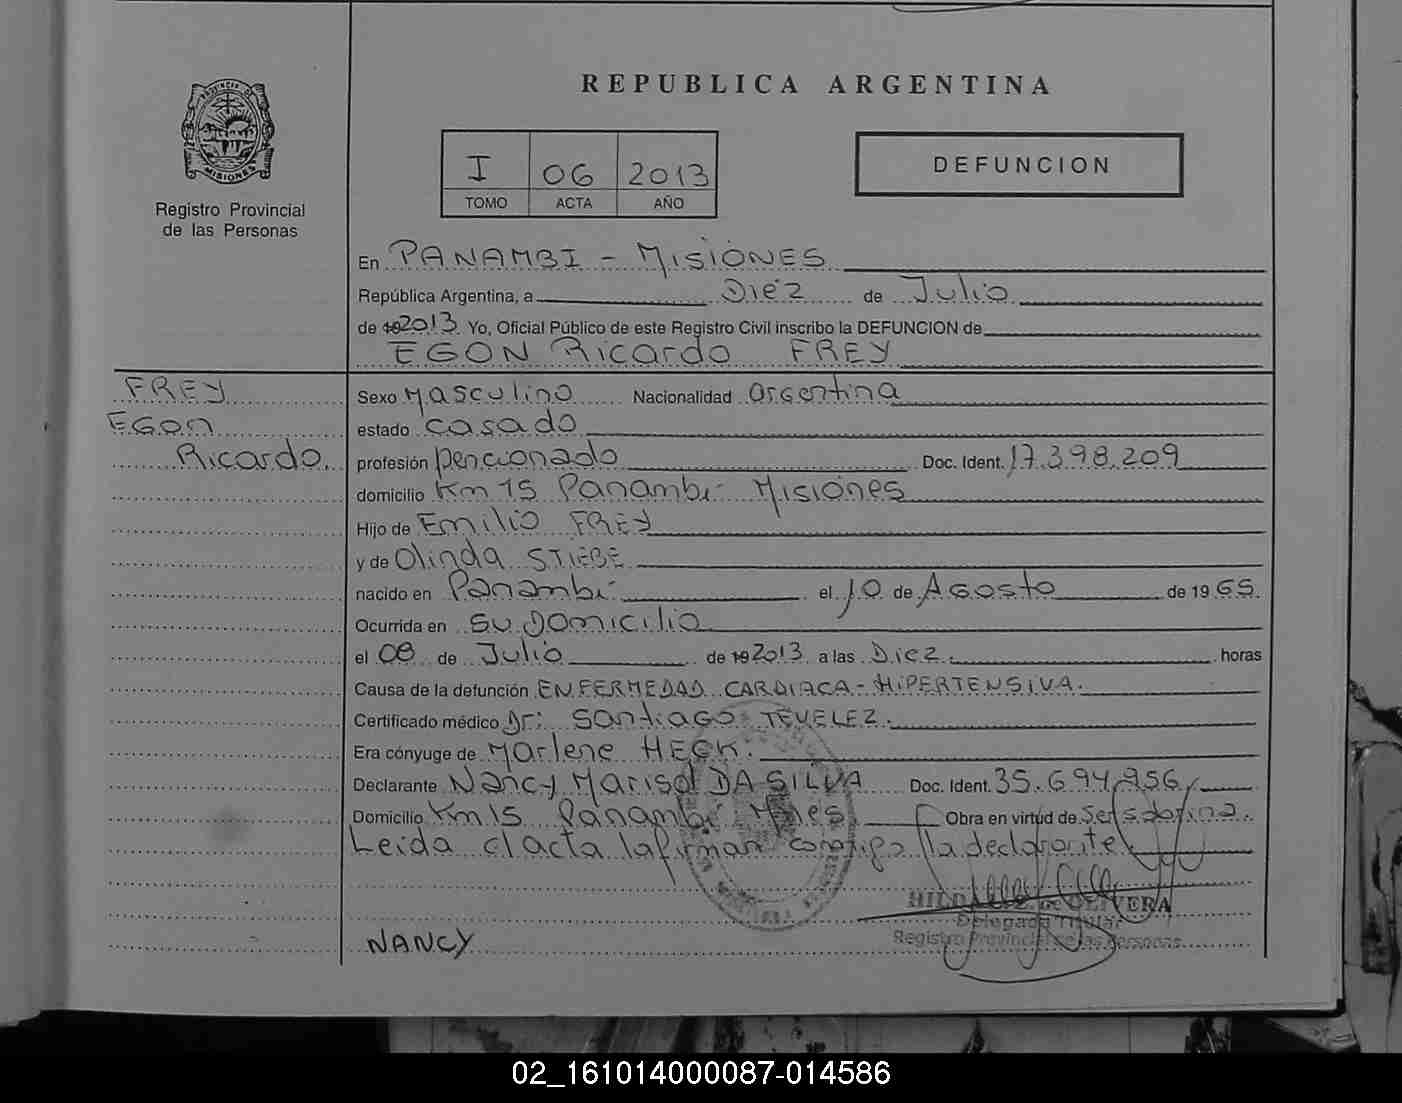 REPUBLICA ARGENTINA
PROVINCIA DE
MISIONES
Registro Provincial
de las Personas
I 06 2013
TOMO ACTA AÑO
DEFUNCION
En PANAMBI - MISIONES
República Argentina, a Diez de Julio
de 2013 Yo, Oficial Público de este Registro Civil inscribo la DEFUNCION de
EGON Ricardo FREY
FREY
EGON
Ricardo
Sexo Masculino Nacionalidad argentina
estado casado
profesión pencionado Doc. Ident. 17.398.209
domicilio Km 15 Panambi Misiones
Hijo de Emilio FREY
y de Olinda STIEBE
nacido en Panambi el 10 de Agosto de 1965.
Ocurrida en su Domicilio
el 08 de Julio de 2013 a las Diez. horas
Causa de la defunción ENFERMEDAD CARDIACA - HIPERTENSIVA.
Certificado médico Dr: Santiago TEVELEZ.
Era cónyuge de Marlene HECK.
Declarante Nancy Marisol DA SILVA Doc. Ident. 35.694.956
Domicilio Km 15 Panambi Mnes Obra en virtud de
Leida el acta la firman conmigo la declarante
OLIVERA
Delegada Titular
Registro Provincial de las Personas
NANCY
02_161014000087-014586